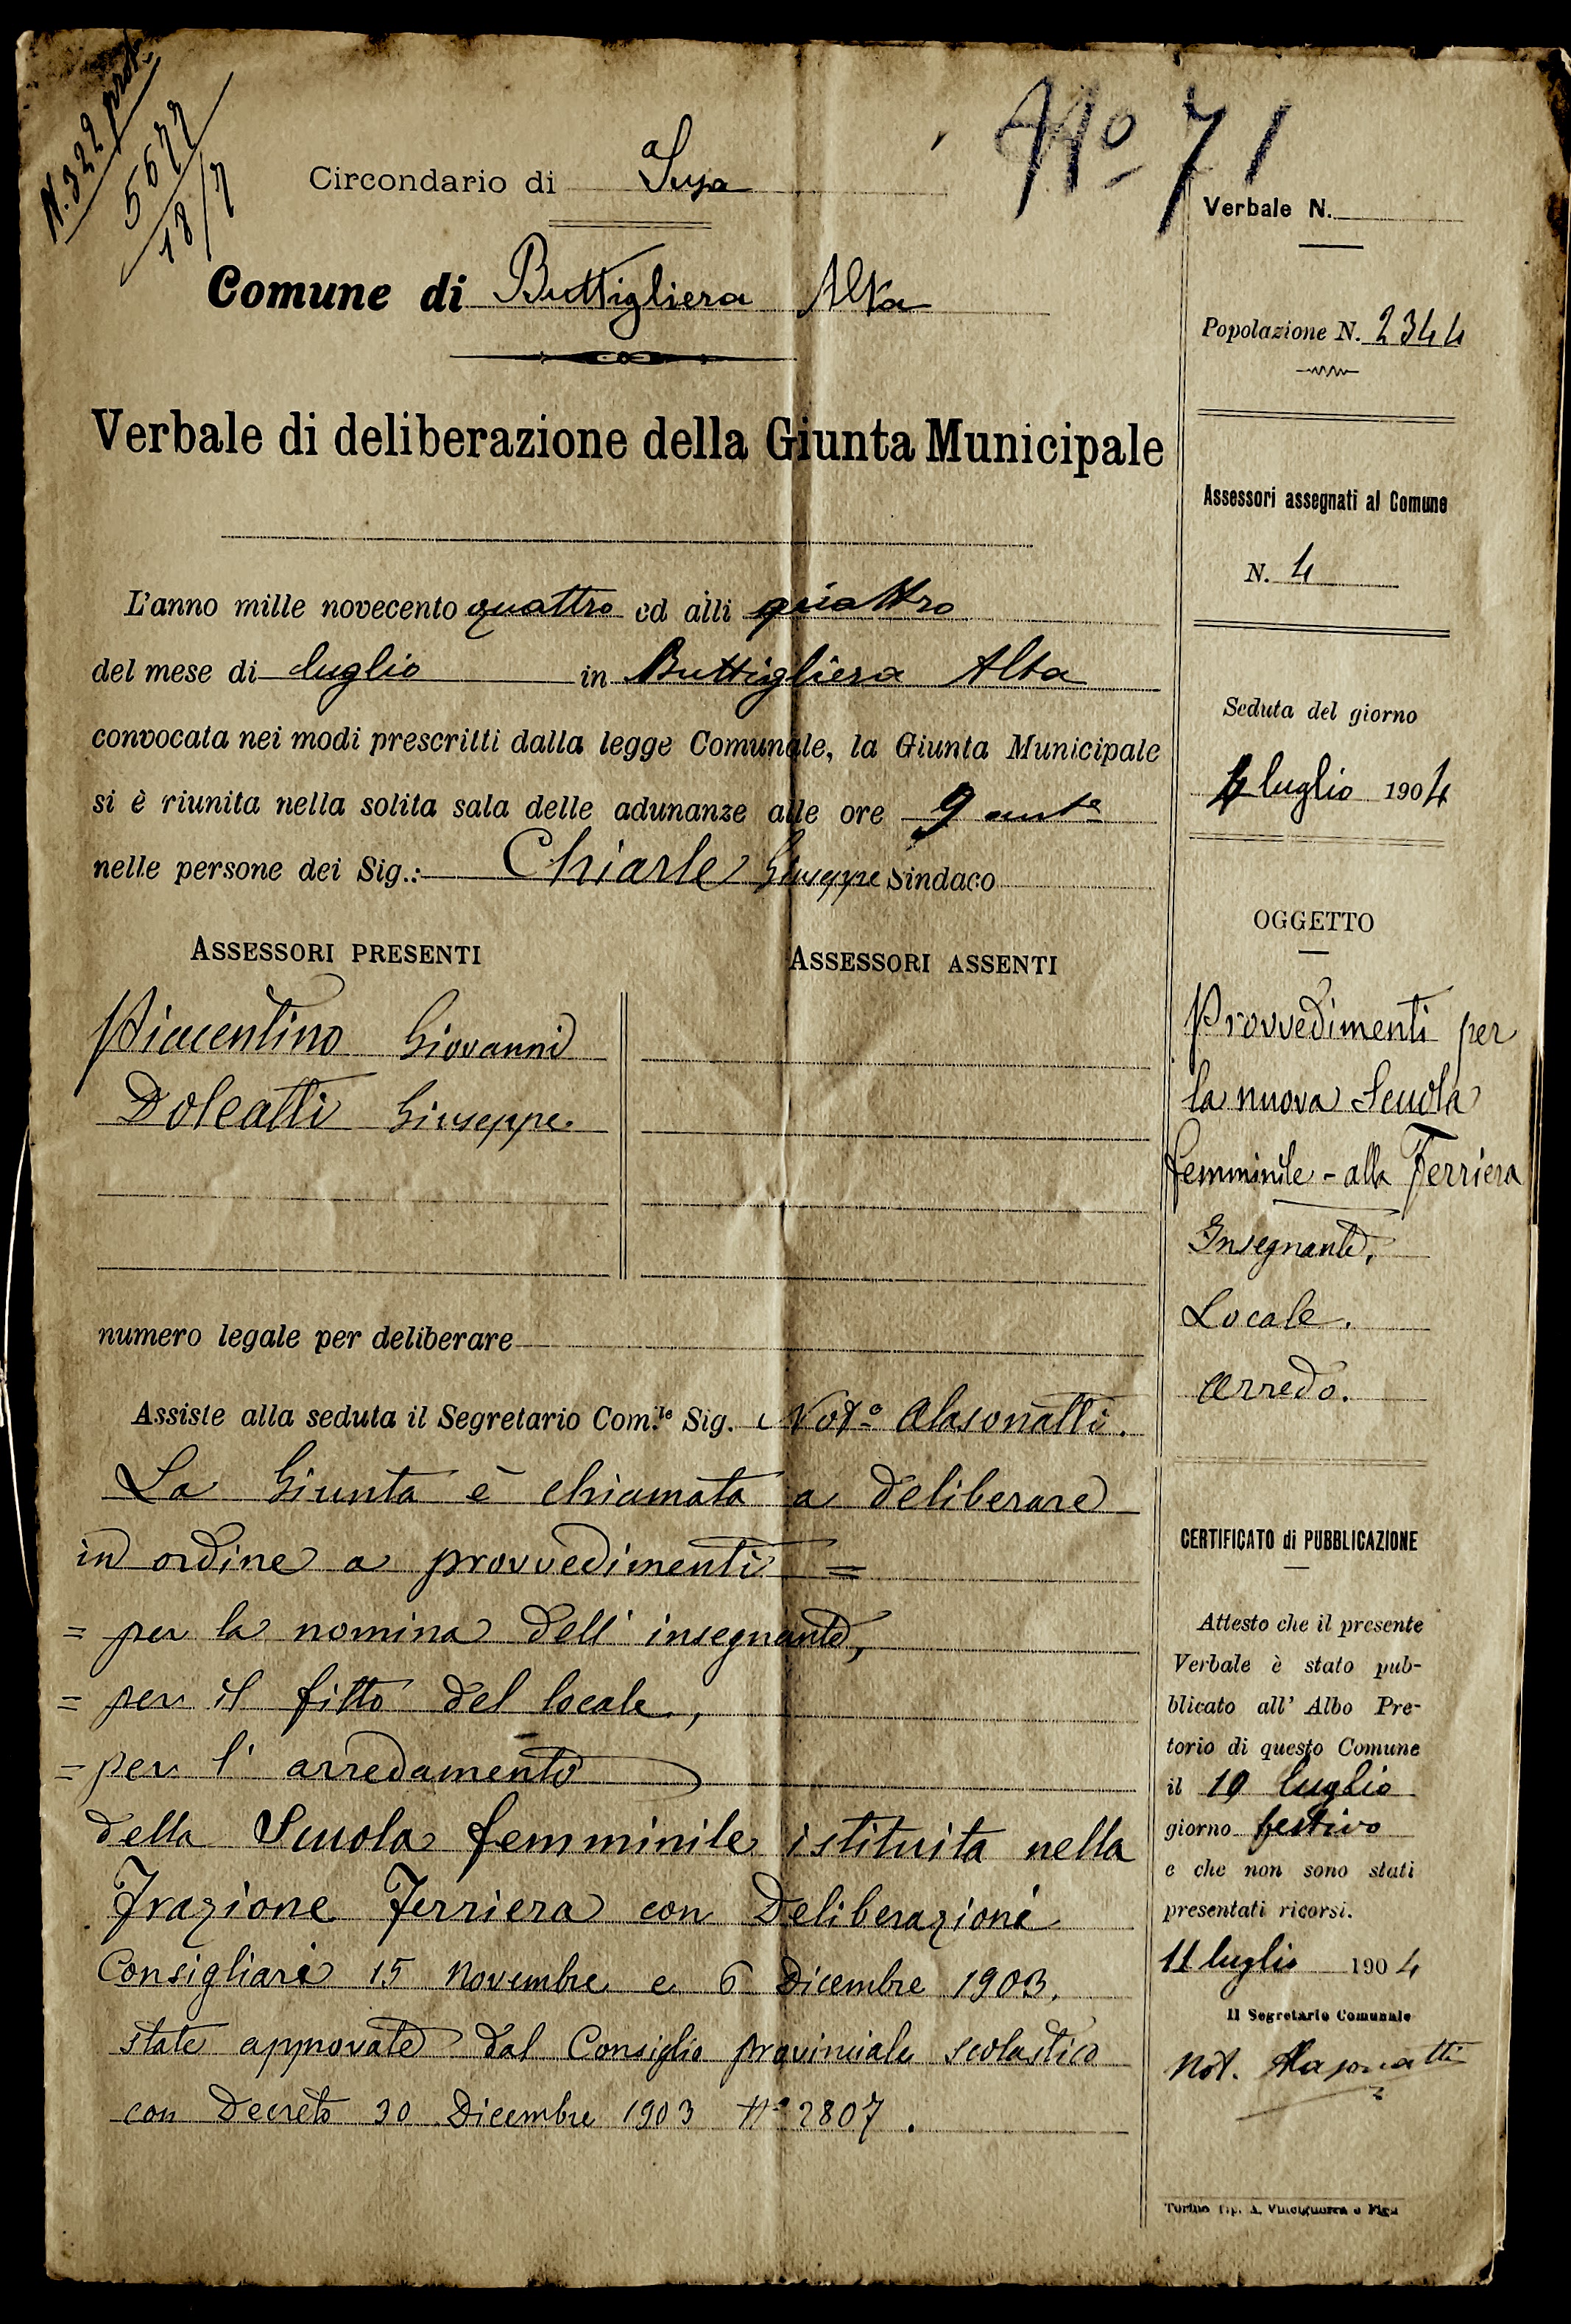 N. 322 prot.
5677
18/7
Nº 71
Circondario di Susa
Comune di Buttigliera Alta
Verbale di deliberazione della Giunta Municipale
L'anno mille novecento quattro ed alli quattro
del mese di luglio in Buttigliera Alta
convocata nei modi prescritti dalla legge Comunale, la Giunta Municipale
si è riunita nella solita sala delle adunanze alle ore 9 antᵉ
nelle persone dei Sig.: Chiarle Giuseppe Sindaco
ASSESSORI PRESENTI
Piacentino Giovanni
Doleatti Giuseppe.
ASSESSORI ASSENTI
numero legale per deliberare
Assiste alla seduta il Segretario Com.le Sig. Notº Alasonatti.
La Giunta è chiamata a deliberare
in ordine a provvedimenti =
= per la nomina dell' insegnante,
= per il fitto del locale,
= per l' arredamento
della Scuola femminile istituita nella
Frazione Ferriera con Deliberazioni
Consigliari 15 Novembre e 6 Dicembre 1903,
state approvate dal Consiglio provinciale scolastico
con Decreto 30 Dicembre 1903 Nº 2807.
Verbale N.
Popolazione N. 2344
Assessori assegnati al Comune
N. 4
Seduta del giorno
4 luglio 1904
OGGETTO
Provvedimenti per
la nuova Scuola
femminile - alla Ferriera
Insegnante,
Locale.
Arredo.
CERTIFICATO di PUBBLICAZIONE
Attesto che il presente
Verbale è stato pub-
blicato all' Albo Pre-
torio di questo Comune
il 10 luglio
giorno festivo
e che non sono stati
presentati ricorsi.
11 luglio 1904
Il Segretario Comunale
Not. Alasonatti
Torino Tip. A. Vinciguerra e Figli